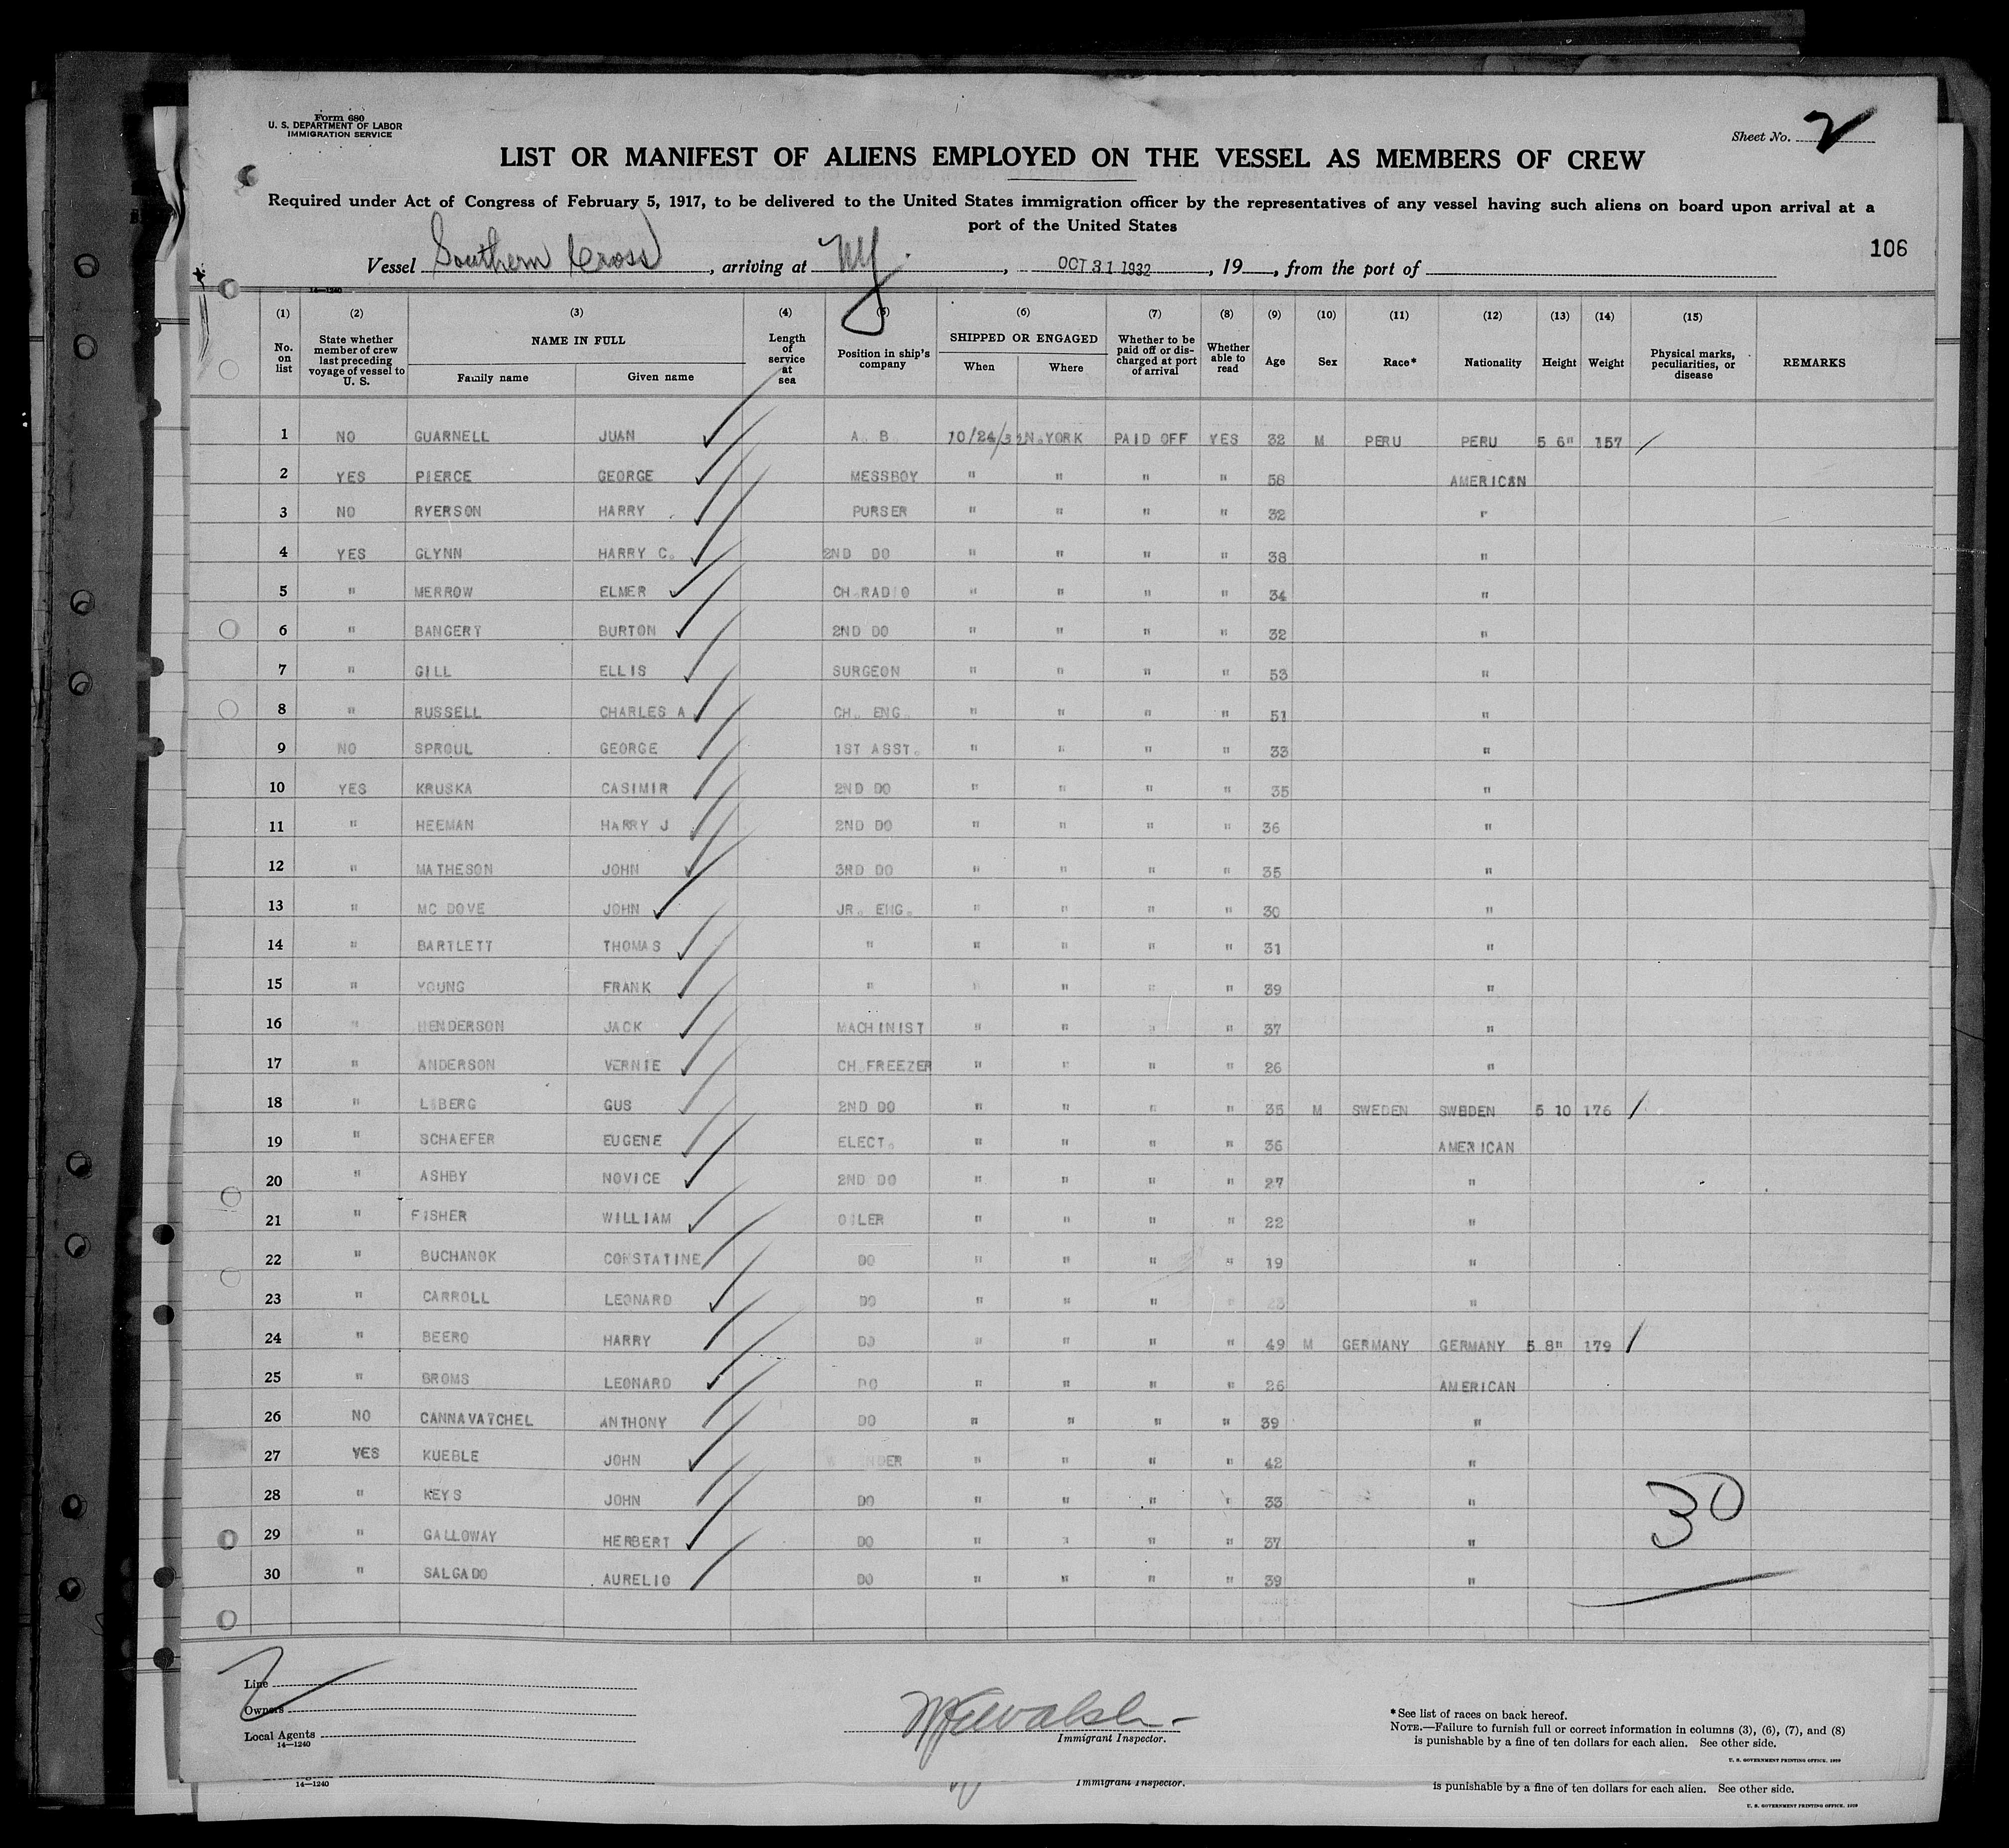 Form 680
U. S. DEPARTMENT OF LABOR
IMMIGRATION SERVICE
Sheet No. 2
LIST OR MANIFEST OF ALIENS EMPLOYED ON THE VESSEL AS MEMBERS OF CREW
Required under Act of Congress of February 5, 1917, to be delivered to the United States immigration officer by the representatives of any vessel having such aliens on board upon arrival at a
port of the United States
106
Vessel Southern Cross, arriving at NY., OCT 31 1932, 19, from the port of
14—1240
(1) (2) (3) (4) (5) (6) (7) (8) (9) (10) (11) (12) (13) (14) (15)
No. on list State whether member of crew last preceding voyage of vessel to U. S. NAME IN FULL Family name Given name Length of service at sea Position in ship's company SHIPPED OR ENGAGED When Where Whether to be paid off or discharged at port of arrival Whether able to read Age Sex Race* Nationality Height Weight Physical marks, peculiarities, or disease REMARKS
1 NO GUARNELL JUAN A. B 10/24/32 N.YORK PAID OFF YES 32 M PERU PERU 5 6" 157 /
2 YES PIERCE GEORGE MESSBOY " " " " 58 AMERICAN
3 NO RYERSON HARRY PURSER " " " " 32 "
4 YES GLYNN HARRY C. 2ND DO " " " " 38 "
5 " MERROW ELMER CH.RADIO " " " " 34 "
6 " BANGERT BURTON 2ND DO " " " " 32 "
7 " GILL ELLIS SURGEON " " " " 53 "
8 " RUSSELL CHARLES A CH. ENG. " " " " 51 "
9 NO SPROUL GEORGE 1ST ASST. " " " " 33 "
10 YES KRUSKA CASIMIR 2ND DO " " " " 35 "
11 " HEEMAN HARRY J 2ND DO " " " " 36 "
12 " MATHESON JOHN 3RD DO " " " " 35 "
13 " MC DOVE JOHN JR. ENG. " " " " 30 "
14 " BARTLETT THOMAS " " " " " 31 "
15 " YOUNG FRANK " " " " " 39 "
16 " HENDERSON JACK MACHINIST " " " " 37 "
17 " ANDERSON VERNIE CH.FREEZER " " " " 26 "
18 " GUS 2ND DO " " " " 35 M SWEDEN SWEDEN 5 10 176 /
19 " SCHAEFER EUGENE ELECT. " " " " 36 AMERICAN
20 " ASHBY NOVICE 2ND DO " " " " 27 "
21 " FISHER WILLIAM OILER " " " " 22 "
22 " BUCHANOK CONSTATINE DO " " " " 19 "
23 " CARROLL LEONARD DO " " " " "
24 " BEERO HARRY DO " " " " 49 M GERMANY GERMANY 5 8" 179 /
25 " LEONARD DO " " " " 26 AMERICAN
26 NO CANNAVATCHEL ANTHONY DO " " " " 39 "
27 YES KUEBLE JOHN " " " " 42 "
28 " KEYS JOHN DO " " " " 33 "
29 " GALLOWAY HERBERT DO " " " " 37 "
30 " SALGADO AURELIO DO " " " " 39 "
30
Line
Owners
Local Agents
14—1240
Immigrant Inspector.
*See list of races on back hereof.
NOTE.—Failure to furnish full or correct information in columns (3), (6), (7), and (8)
is punishable by a fine of ten dollars for each alien. See other side.
U. S. GOVERNMENT PRINTING OFFICE. 1929
14—1240
Immigrant Inspector.
is punishable by a fine of ten dollars for each alien. See other side.
U. S. GOVERNMENT PRINTING OFFICE. 1929